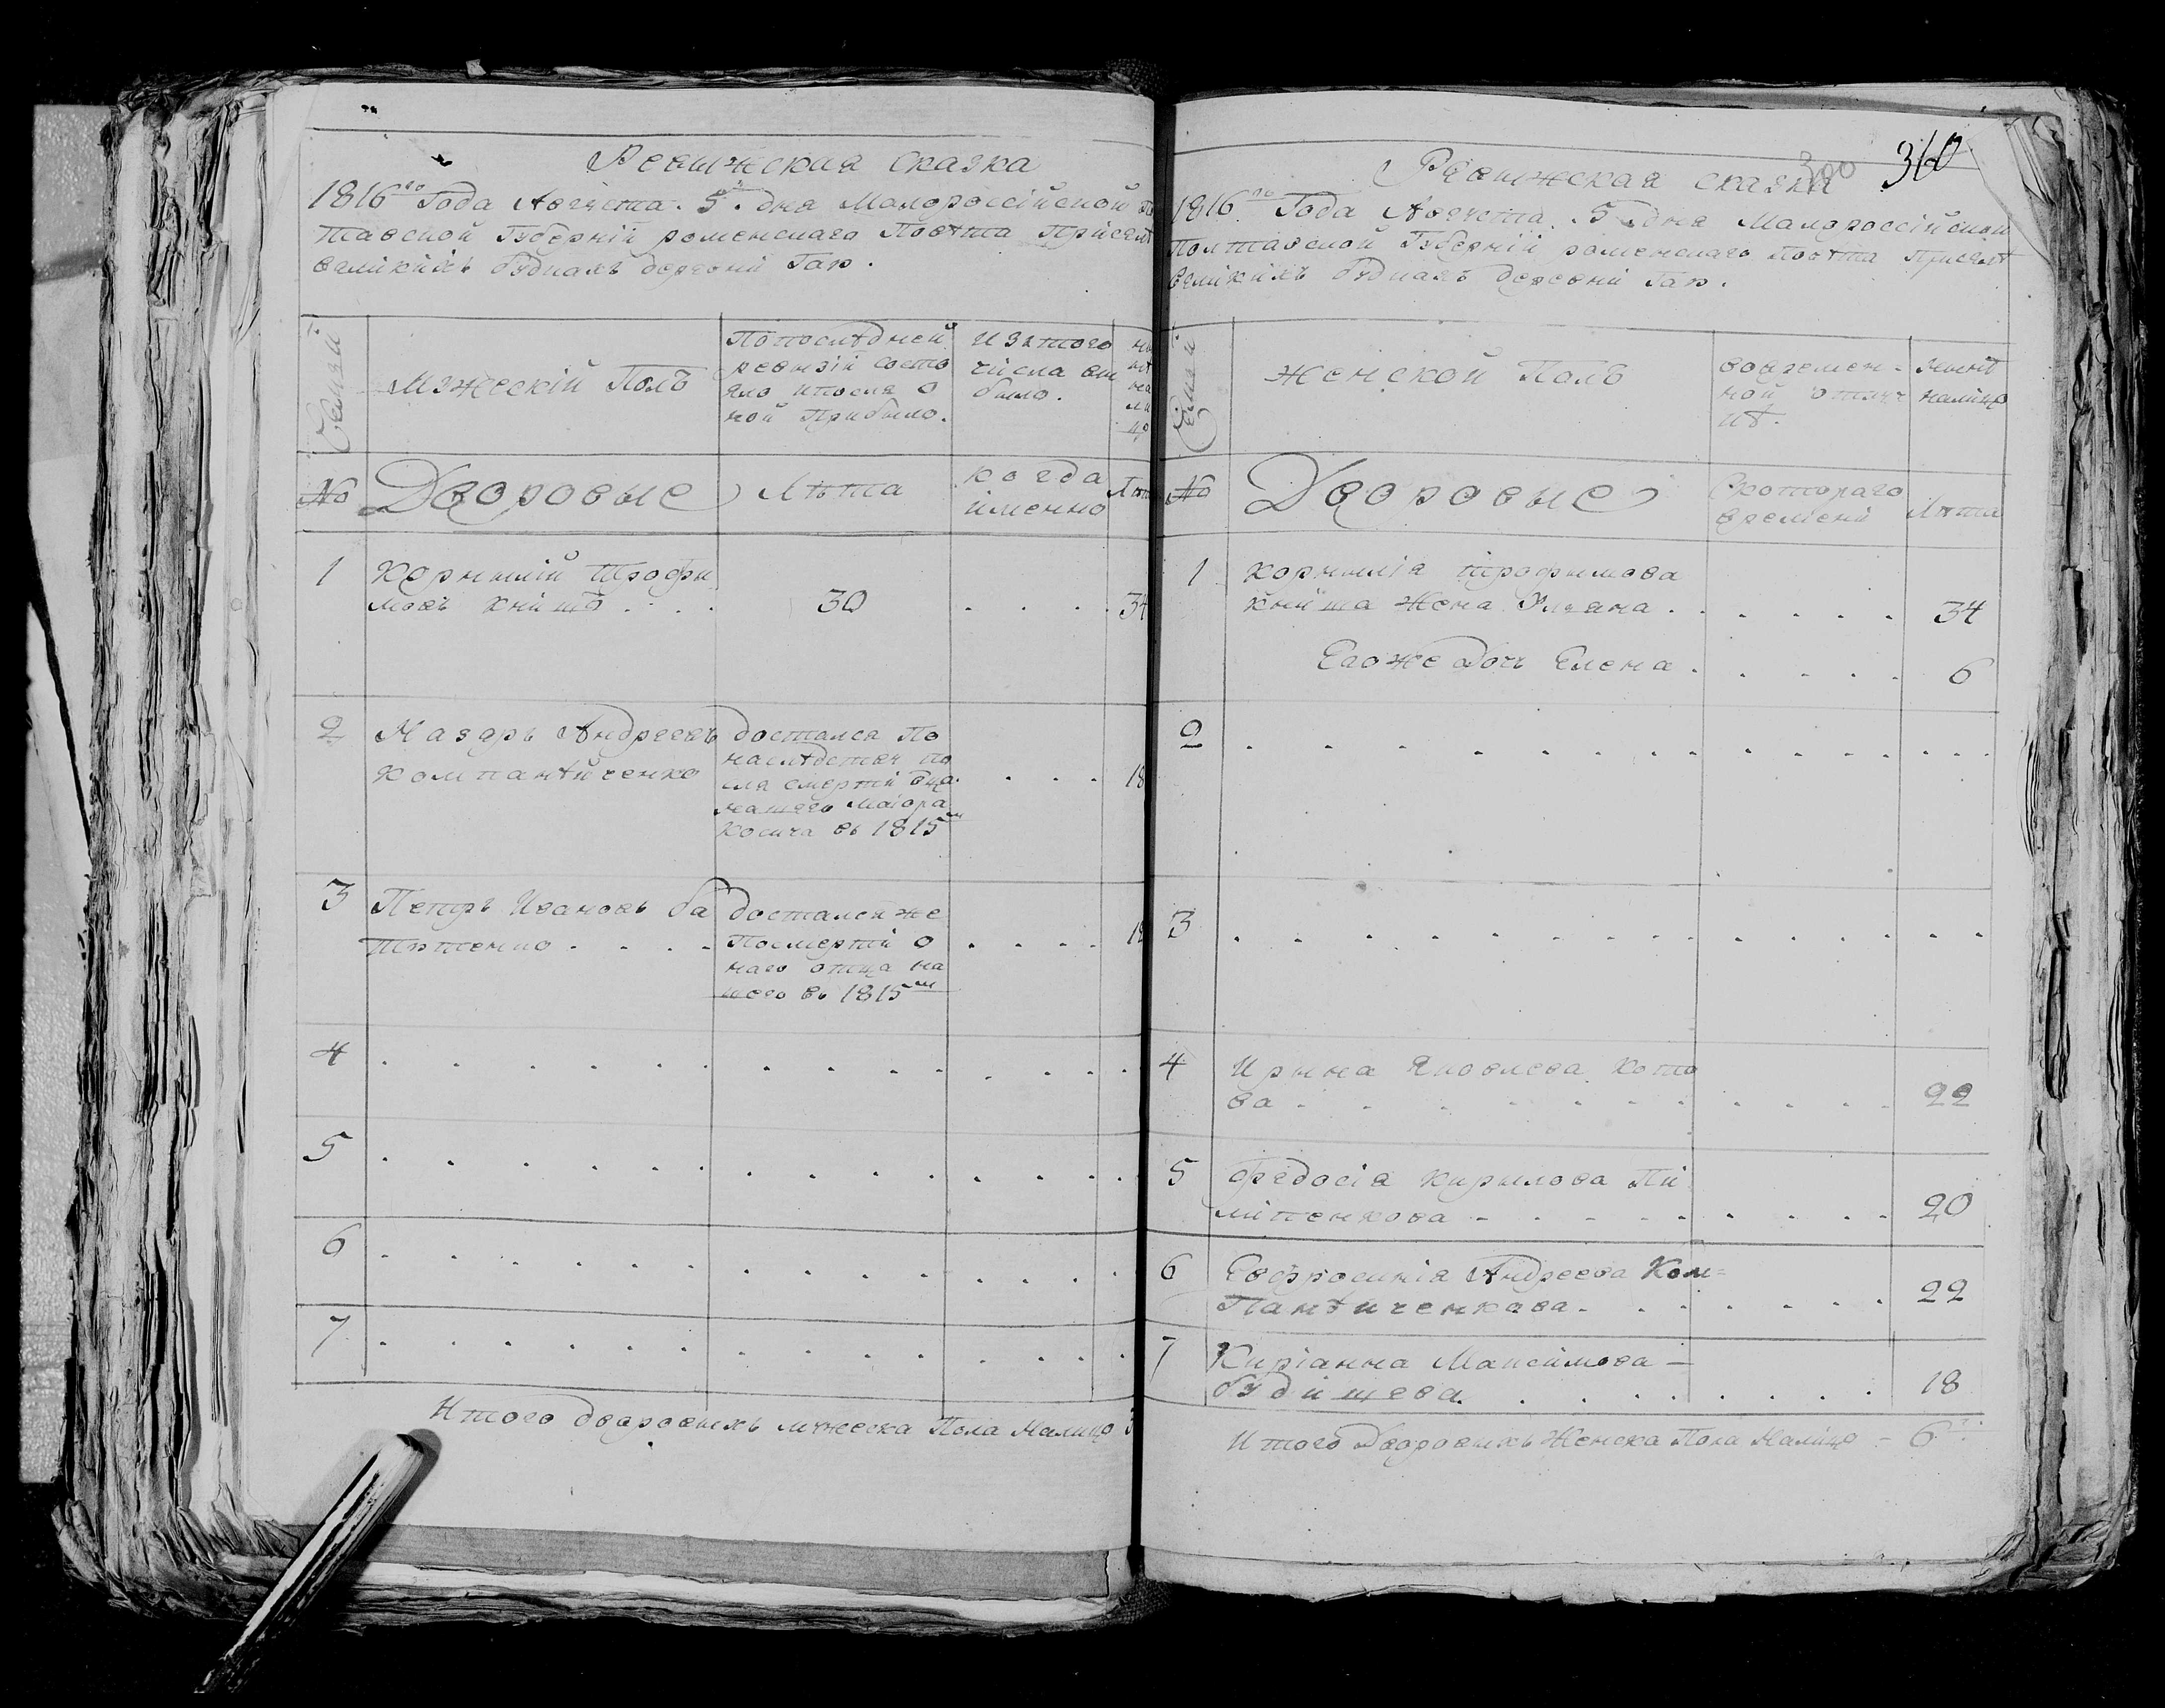 Ревижская сказка
1816го Года Августа 5. дня Малороссійской По
тавской Губерніи роменскаго Повѣта При селѣ
великихъ будкахъ деревни Гаю.
Семьи
Мужескій Полъ
По последней
ревизіи состо
яло и после о
ной Прибыло.
Изъ того
числа вы
было.
№
Дворовые
Лѣта
когда
именно
Лѣта
1
Корнилій Трофи
мовъ Книшъ . . . .
30
34
2
Назаръ Андреевъ
Компанѣйченко
достался По
наследству по
сля смерти отца
нашего маіора
Косича въ 1815м
18
3
Петръ Ивановъ ба
тѣтенко . . . .
достался же
По смерти о
наго отца на
шего въ 1815м
4
5
6
7
Итого дворовыхъ мужеска Пола Налицо 3
300
310
Ревижская сказка
1816го Года Августа 5 дня Малороссійской
Полтавской Губерніи роменскаго Повѣта При селѣ
великихъ будкахъ деревни Гаю.
Семьи
Женской Полъ
во времен-
ной отлуч
кѣ.
нынѣ
налицо
№
Дворовые
Скотораго
времени
Лѣта
1
Корнилія трофимова
книша Жена Уляна .
34
Егоже дочь Елена .
6
2
3
4
Ирина Яковлева Кото
ва
22
5
Федосія Кирилова Пи
липенкова
20
6
Евфросинія Андреева Ком=
Панѣиченкова
22
7
Киріанна Максимова —
будищева
18
Итого Дворовыхъ Женска Пола Налицо - 6